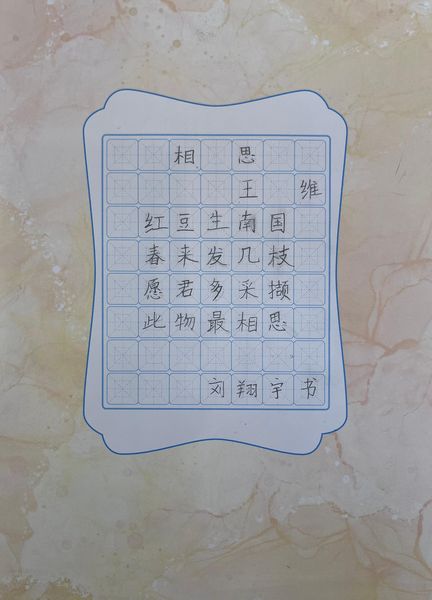 相思
王维
红豆生南国
春来发几枝
愿君多采撷
此物最相思
刘翔宇书